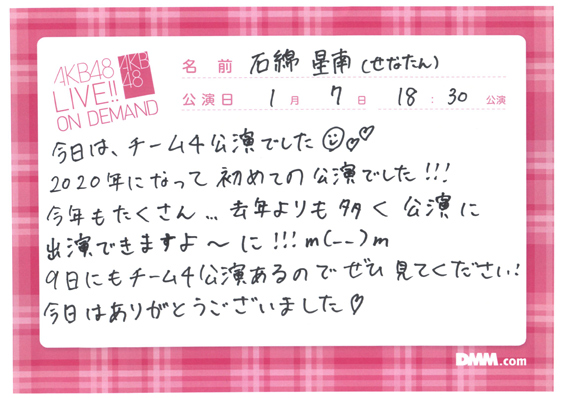 AKB48
LIVE!!
ON DEMAND
AKB
48
名前 石綿 星南(せなたん)
公演日 1月 7日 18:30 公演
今日は、チーム4公演でした☺♡♡
2020年になって初めての公演でした!!!
今年もたくさん…去年よりも多く公演に
出演できますよ〜に!!!m(__)m
9日にもチーム4公演あるのでぜひ見てください!
今日はありがとうございました♡
DMM.com